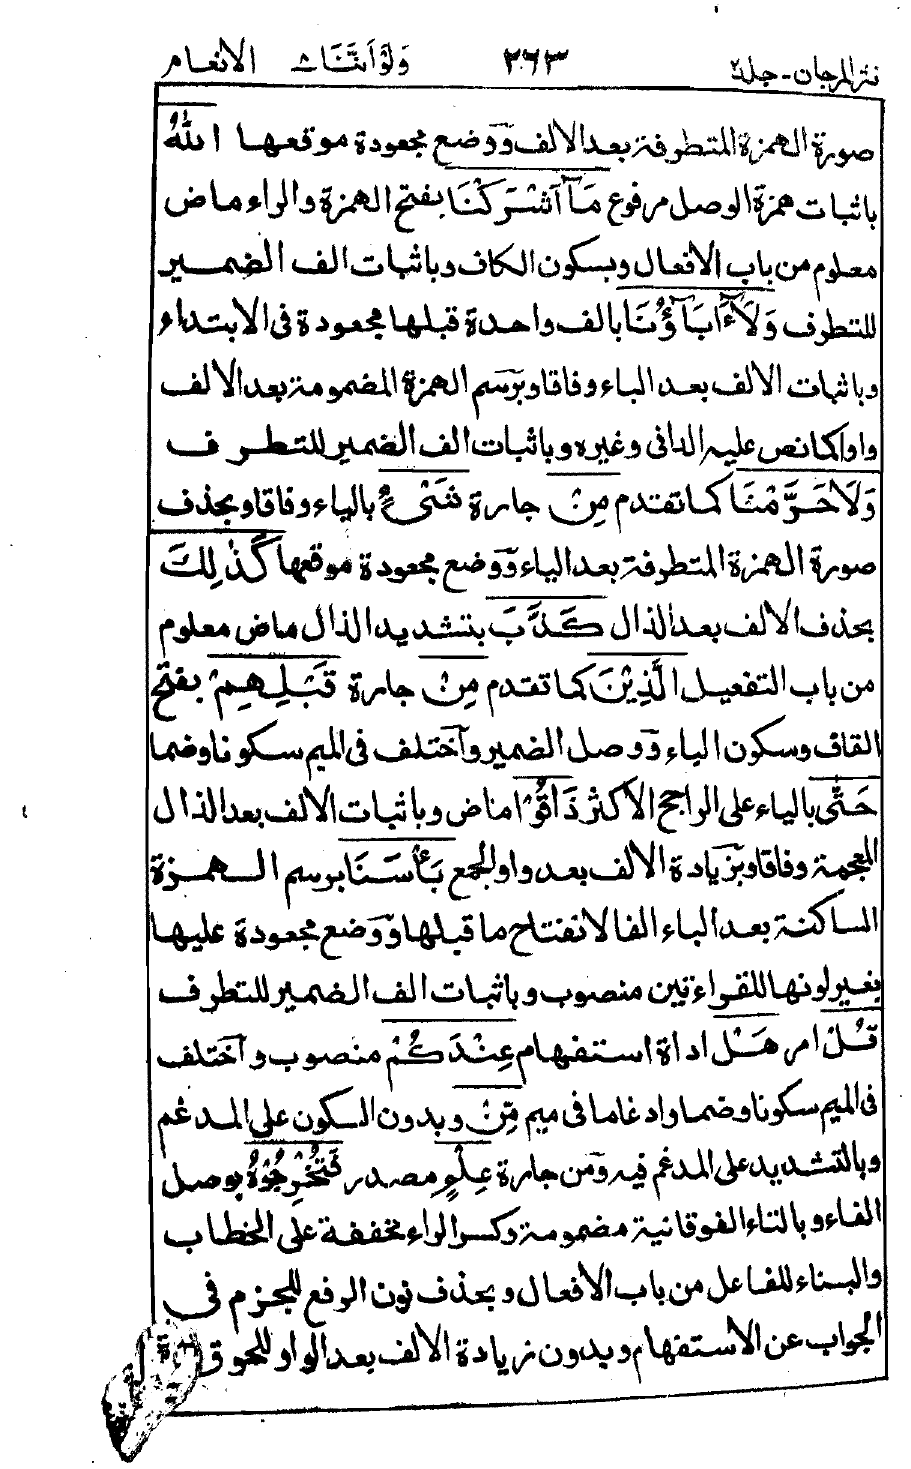 نثر المرجان - جلد ٢ ٢٦٣ وَلَوْ أَنَّنَا ٨ الانعام
صورة الهمزة المتطرفة بعد الالف ووضع مجعودة موقعها اللهُ
باثبات همزة الوصل مرفوع مَآ اَشْرَكْنَا بفتح الهمزة والراء ماض
معلوم من باب الافعال وبسكون الكاف وباثبات الف الضمير
للتطرف وَلَآ ءَابَآؤُنَا بالف واحدة قبلها مجعودة فى الابتداء
وباثبات الالف بعد الباء وفاقا وبرسم الهمزة المضمومة بعد الالف
واوا كما نص عليه الدانى وغيره وباثبات الف الضمير للتطرف
وَلَا حَرَّمْنَا كما تقدم مِنْ جارة شَىْءٍ بالياء وفاقا وبحذف
صورة الهمزة المتطرفة بعد الياء ووضع مجعودة موقعها كَذٰلِكَ
بحذف الالف بعد الذال كَذَّبَ بتشديد الذال ماض معلوم
من باب التفعيل الَّذِيْنَ كما تقدم مِنْ جارة قَبْلِهِمْ بفتح
القاف وسكون الباء ووصل الضمير واختلف فى الميم سكونا وضما
حَتّٰى بالياء على الراجح الاكثر ذَاقُوْا ماض وباثبات الالف بعد الذال
المعجمة وفاقا وبزيادة الالف بعد واو الجمع بَأْسَنَا برسم الهمزة
الساكنة بعد الباء الفا لانفتاح ما قبلها ووضع مجعودة عليها
بغير لونها للقراءتين منصوب وباثبات الف الضمير للتطرف
قُلْ امر هَلْ اداة استفهام عِنْدَكُمْ منصوب واختلف
فى الميم سكونا وضما وادغاما فى ميم مِّنْ وبدون السكون على المدغم
وبالتشديد على المدغم فيه ومن جارة عِلْمٍ مصدر فَتُخْرِجُوْهُ بوصل
الفاء وبالتاء الفوقانية مضمومة وكسر الراء مخففة على الخطاب
والبناء للفاعل من باب الافعال وبحذف نون الرفع للجزم فى
الجواب عن الاستفهام وبدون زيادة الالف بعد الواو للحوق